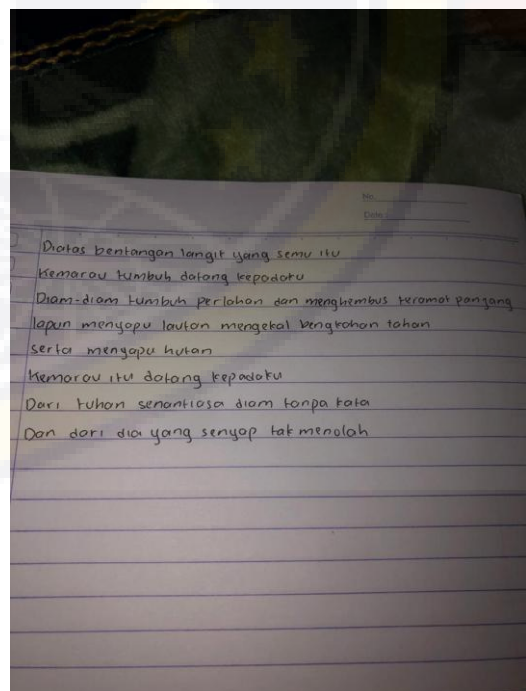 No.
Date
Diatas bentangan langit yang semu itu
Kemarau tumbuh datang kepadaku
Diam-diam tumbuh perlahan dan menghembus teramat panjang
lapun menyapu lautan mengekal bengkahan tahan
serta menyapu hutan
Kemarau itu datang kepadaku
Dari tuhan senantiasa diam tanpa kata
Dan dari dia yang senyap tak menolah